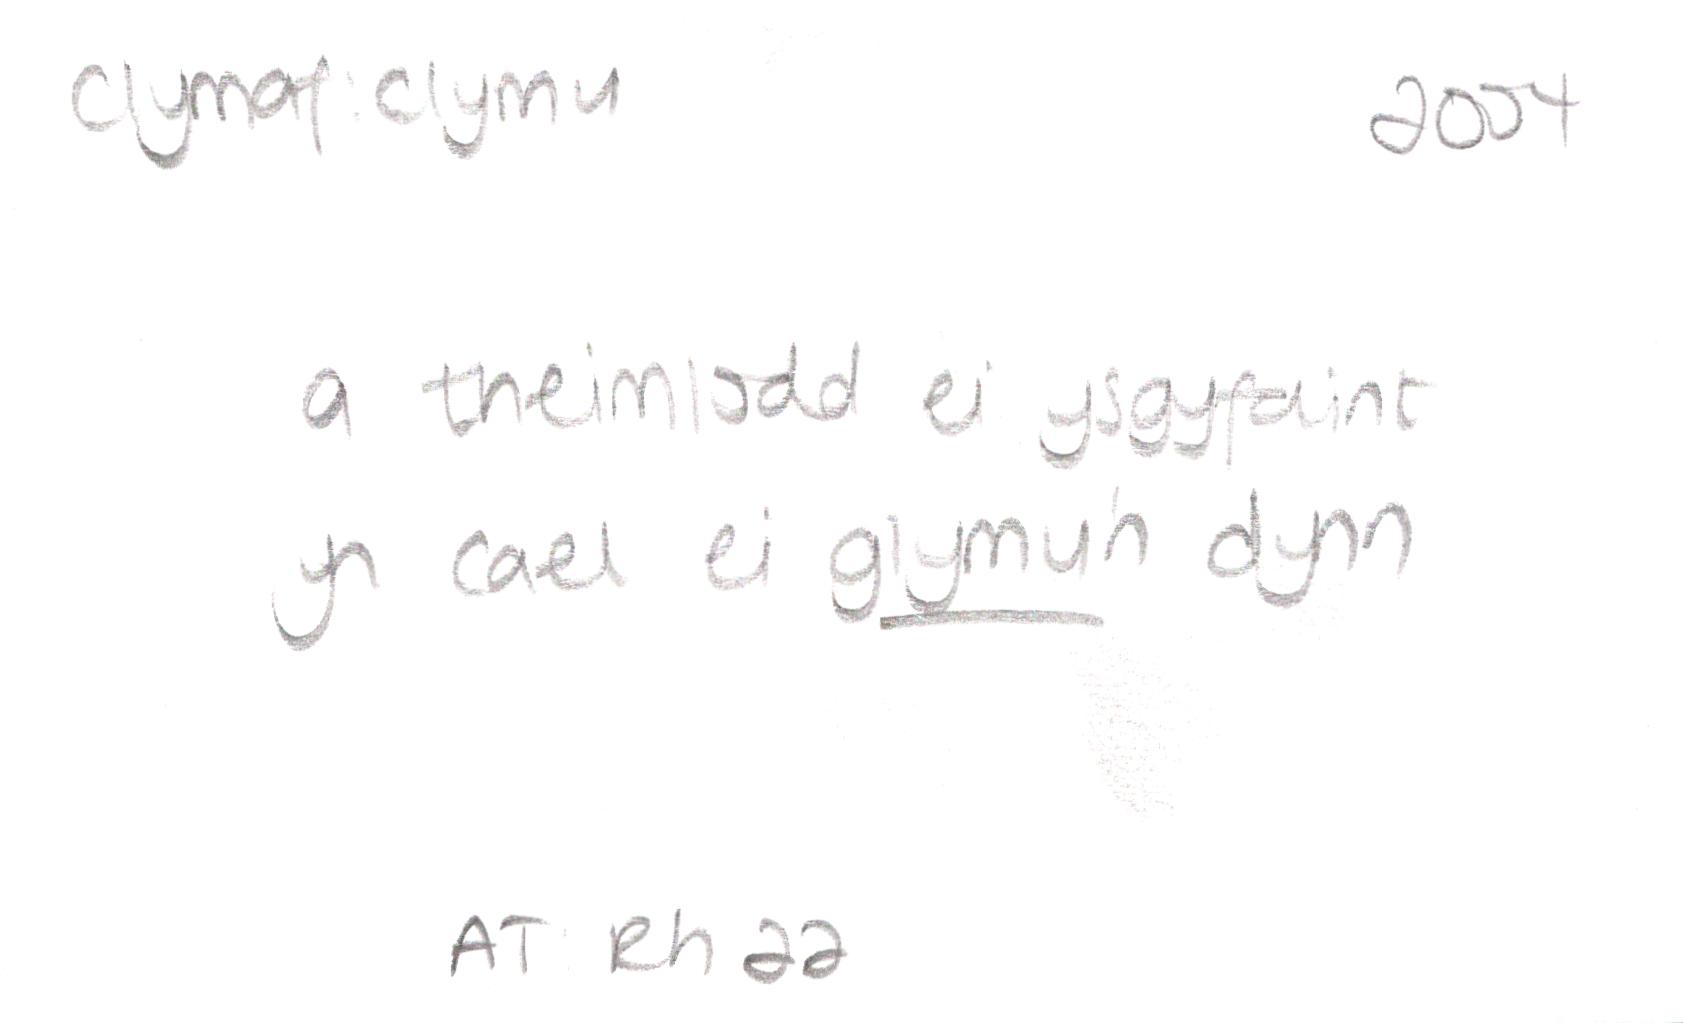 clymaf: clymu 2004
a theimlodd ei ysgyfaint
yn cael ei glymu'n dynn
AT: Rh 22